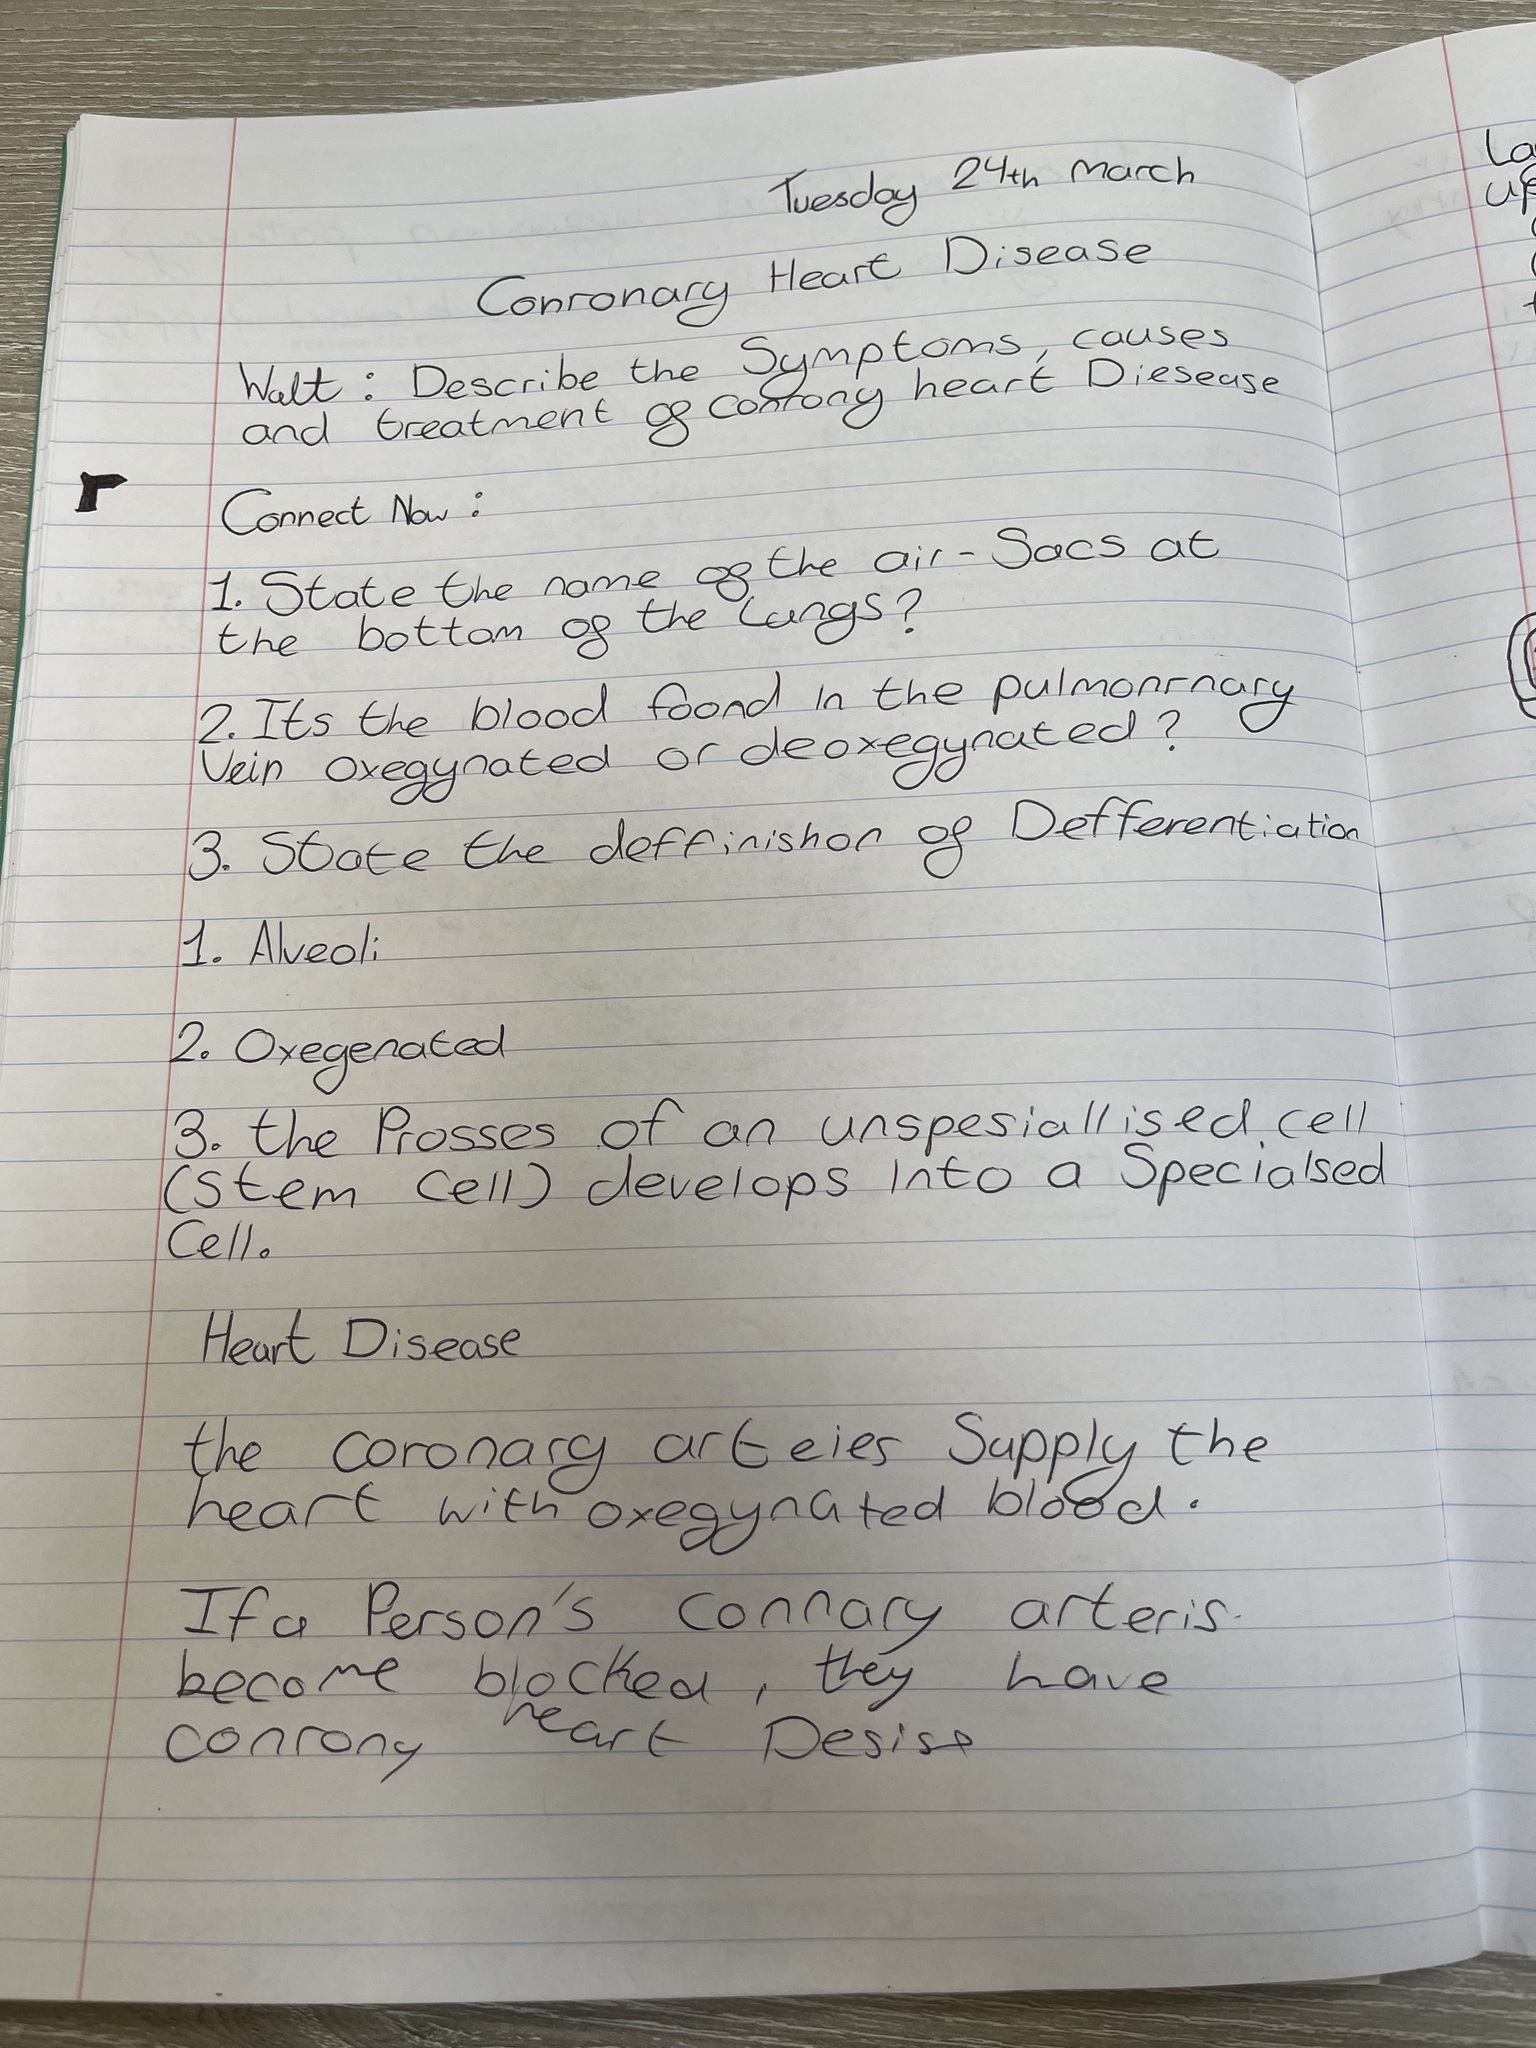 Tuesday 24th March
Conronary Heart Disease
Walt: Describe the Symptoms, causes
and treatment of conrony heart Diesease
Connect Now:
1. State the name of the air-Sacs at
the bottom of the Lungs?
2. Its the blood foond in the pulmonrnary
Vein oxegynated or deoxegynated?
3. State the deffinishon of Defferentiation
1. Alveoli
2. Oxegenated
3. the Prosses of an unspesiallised cell
(Stem Cell) develops into a Specialsed
Cell.
Heart Disease
the coronary arteies Supply the
heart with oxegynated blood.
If a Person's connary arteris
become blocked, they have
conrony heart Desise
La
up